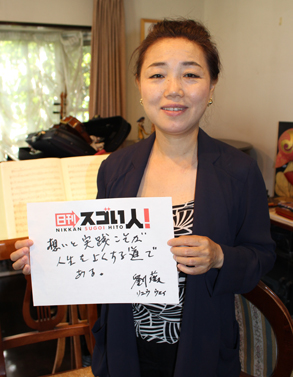 日刊スゴい人!
NIKKAN SUGOI HITO
想いと実践こそが
人生をよくする道で
ある。
劉薇
リュウ ウェイ